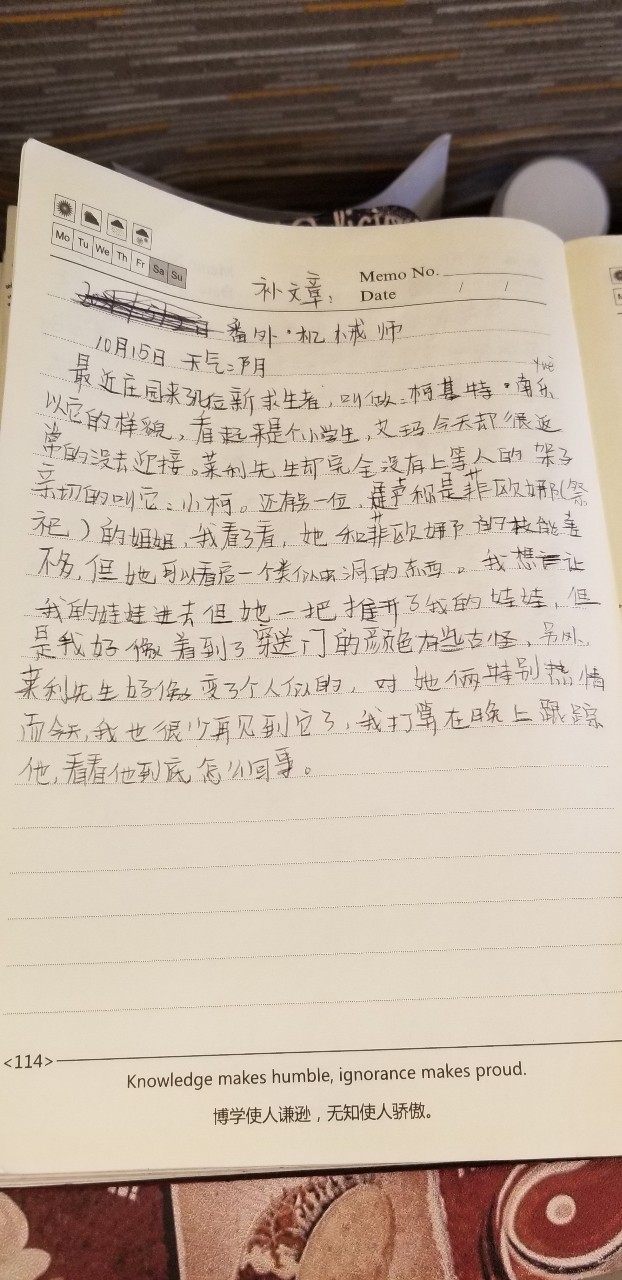 Mo Tu We Th Fr Sa Su
补文章:
Memo No.
Date / /
番外·机械师
10月15日 天气:阴
yuè
最近庄园来了几位新求生者,叫做:柯基特·南乐
以它的样貌,看起来是个小学生,艾玛今天却很返
常的没去迎接。莱利先生却完全没有上等人的架子
亲切的叫它:小柯。还有另一位,是声称是菲欧娜(祭
祀)的姐姐,我看了看,她和菲欧娜的技能差
不多,但她可以看后一个类似虫洞的东西。我想让
我的娃娃进去但她一把推开了我的娃娃,但
是我好像看到了穿送门的颜色有些古怪,另外,
莱利先生好像变了个人似的,对她俩特别热情
而今天,我也很少再见到它了,我打算在晚上跟踪
他,看看他到底怎么回事。
<114>
Knowledge makes humble, ignorance makes proud.
博学使人谦逊,无知使人骄傲。